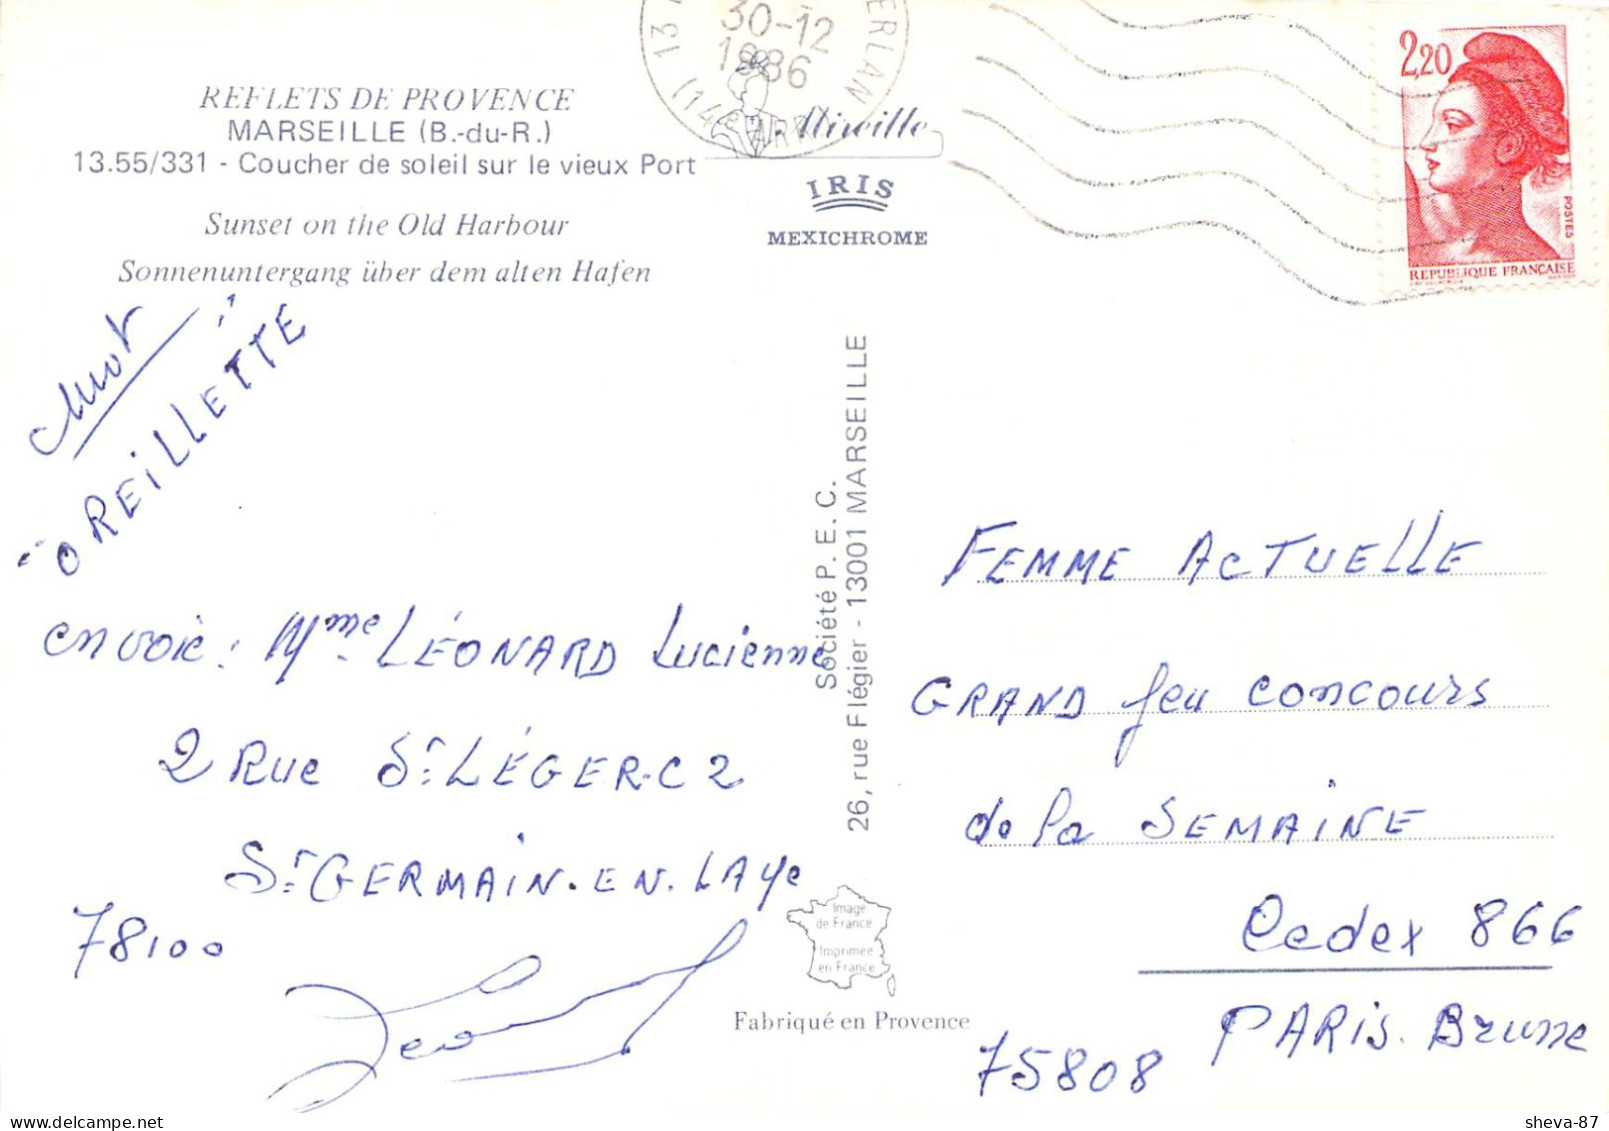 REFLETS DE PROVENCE
MARSEILLE (B.-du-R.)
13.55/331 - Coucher de soleil sur le vieux Port
Sunset on the Old Harbour
Sonnenuntergang über dem alten Hafen
30-12
1986
Mireille
IRIS
MEXICHROME
2,20
POSTES
REPUBLIQUE FRANÇAISE
mot
OREILLETTE
envoie : Mme LÉONARD Lucienne
2 Rue St LÉGER-C2
St GERMAIN.EN.LAYe
78100
Société P.E.C.
26, rue Flégier - 13001 MARSEILLE
Image
de France
Imprimée
en France
Fabriqué en Provence
FEMME ACTUELLE
GRAND jeu concours
de la SEMAINE
Cedex 866
PARIS. Brune
75808
sheva-87